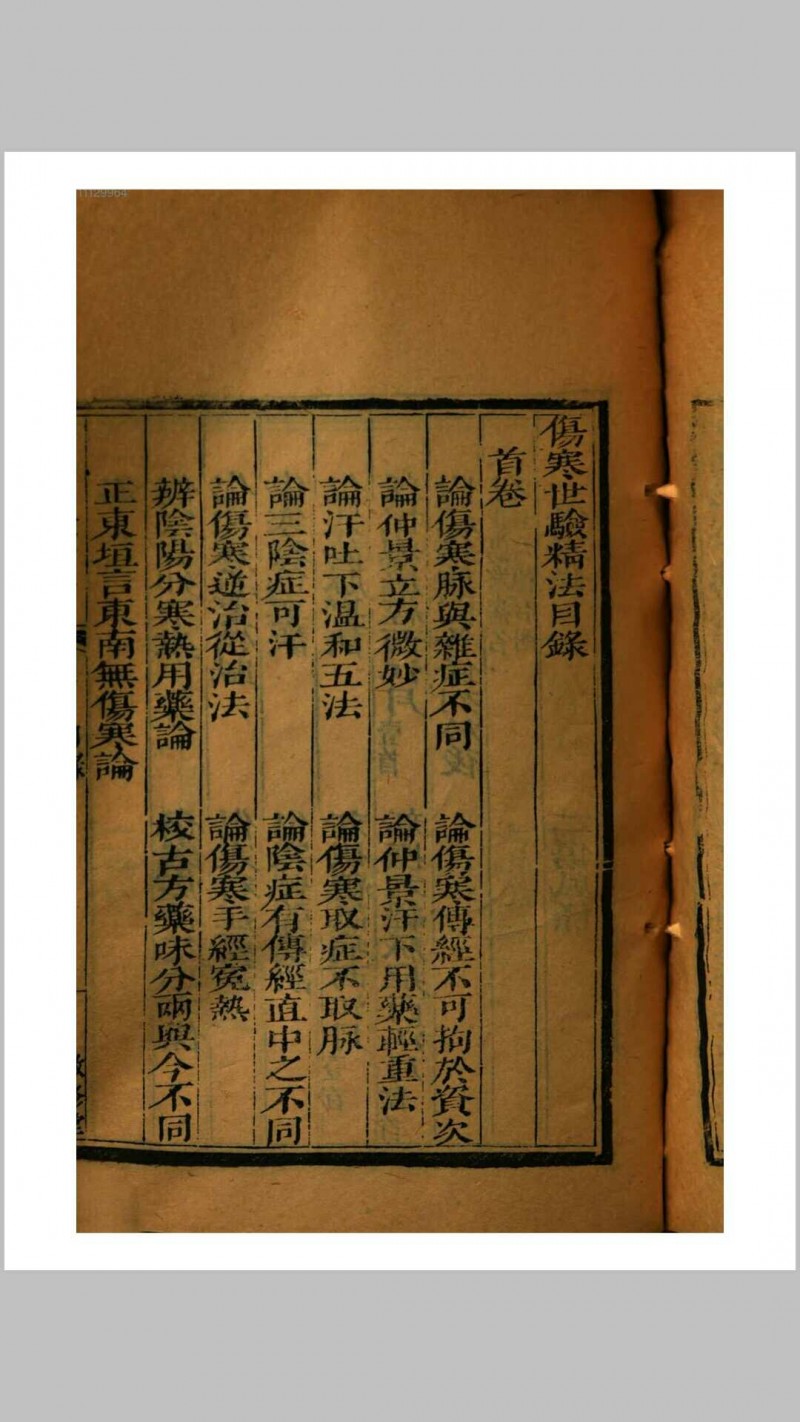 傷寒世驗精法目錄
首卷
論傷寒脉與雜症不同
論傷寒傳經不可拘於資次
論仲景立方微妙
論仲景汗下用藥輕重法
論汗吐下温和五法
論傷寒取症不取脉
論三陰症可汗
論陰症有傳經直中之不同
論傷寒逆治從治法
論傷寒手經冤熱
辨陰陽分寒熱用藥論
校古方藥味分兩與今不同
正東垣言東南無傷寒論
11129964